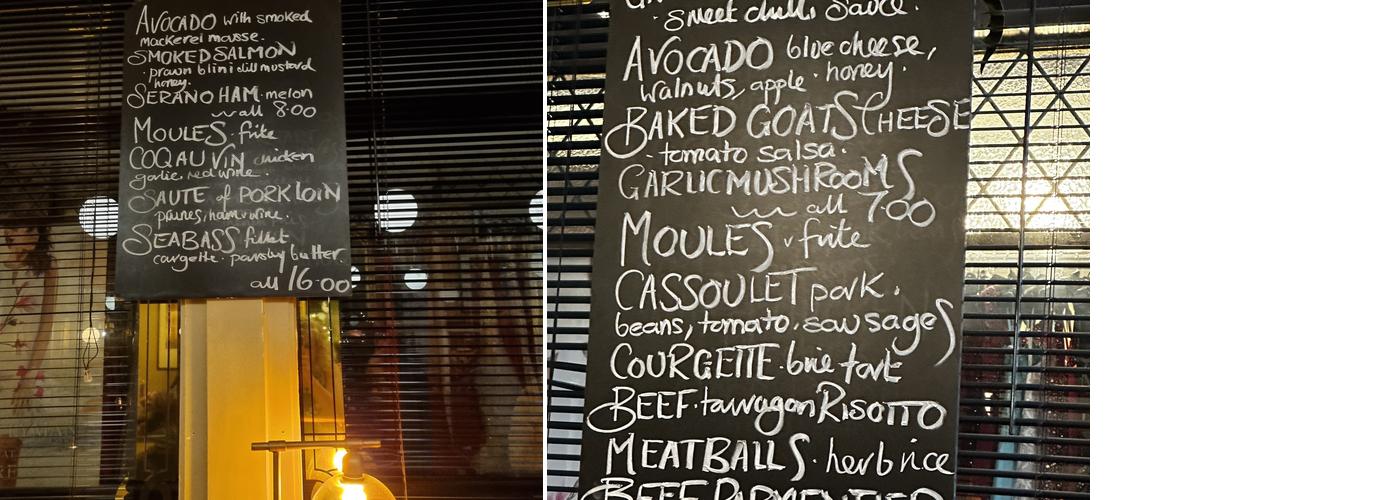 AVOCADO with smoked
mackerel mousse.
SMOKED SALMON
· prawn blini dill mustard
honey.
SERANO HAM · melon
all 8·00
MOULES · frite
COQ AU VIN chicken
garlic, red wine.
SAUTE of PORK LOIN
prunes, ham · wine.
SEABASS fillet
courgette · parsley butter.
all 16·00
· sweet chilli sauce.
AVOCADO blue cheese,
walnuts, apple · honey.
BAKED GOATS CHEESE
- tomato salsa.
GARLIC MUSHROOMS
all 7·00
MOULES · frite
CASSOULET pork.
beans, tomato, sausages
COURGETTE · brie tart
BEEF · tarragon RISOTTO
MEATBALLS · herb rice
BEEF PARMENTIER